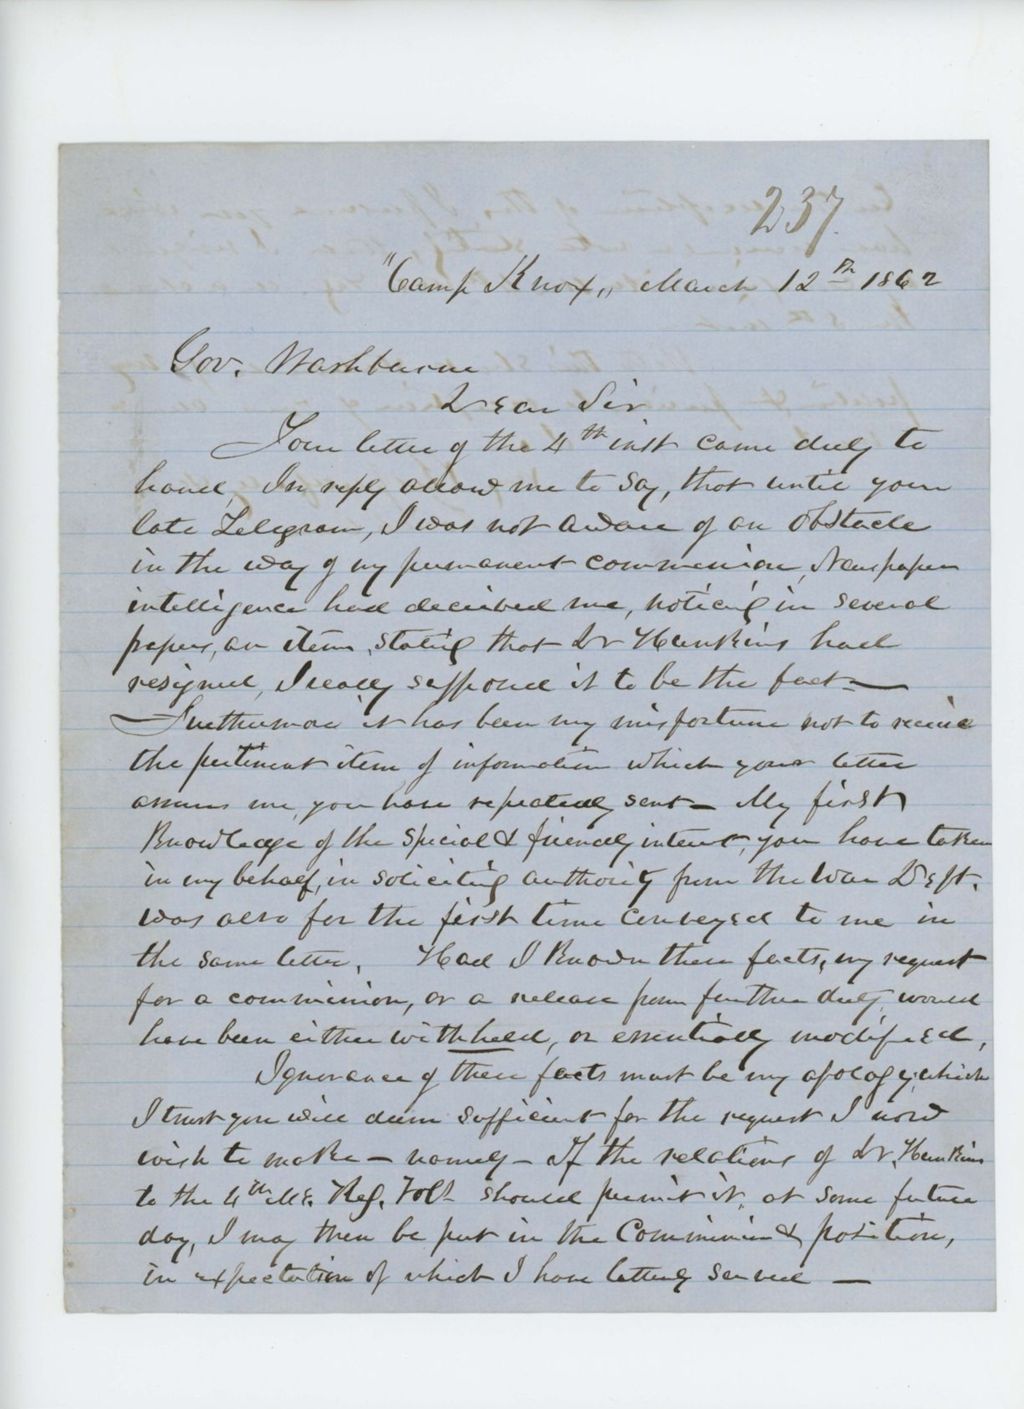 237.
"Camp Knox,, March 12th 1862
Gov. Washburne
Dear Sir
Your letter of the 4th inst came duly to
hand, In reply allow me to say, that until your
late Telegram, I was not aware of an obstacle
in the way of my permanent commission, Newspaper
intelligence had deceived me, noticing in several
papers, an item, stating that Dr Hunkins had
resigned, I really supposed it to be the fact—
Furthermore it has been my misfortune not to receive
the pertinent item of information which your letter
assures me, you have repeatedly sent— My first
Knowledge of the special & friendly interest, you have taken
in my behalf, in soliciting authority from the War Dept.
was also for the first time conveyed to me in
the same letter. Had I Known these facts, my request
for a commission, or a release from further duty, would
have been either withheld, or essentially modified,
Ignorance of these facts must be my apology, which
I trust you will deem sufficient for the request I now
wish to make— namely— If the relations of Dr. Hunkins
to the 4th Me. Reg. Vols should permit it, at some future
day, I may then be put in the Commission & position,
in expectation of which I have latterly served —